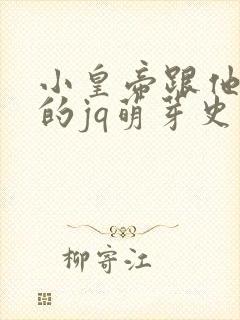 小皇帝跟他
的jq萌芽史
柳寄江